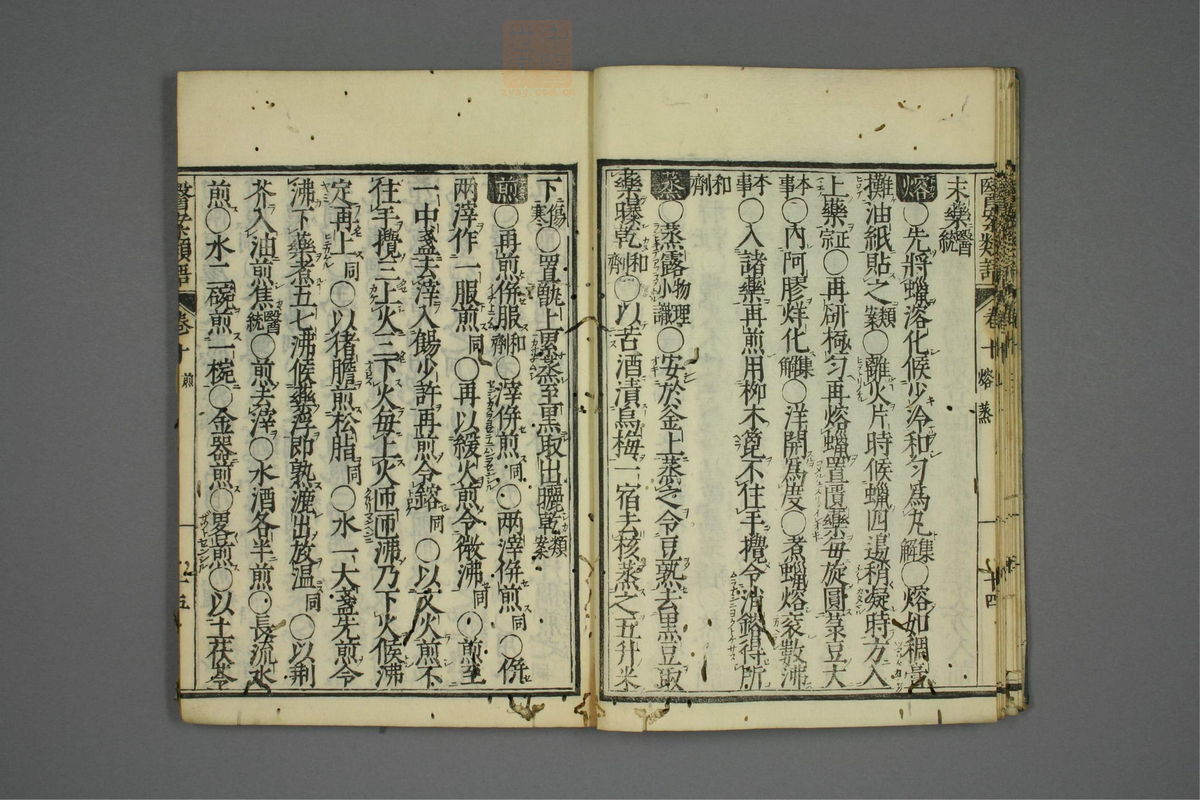 末藥醫統
熔○先將蠟溶化候少冷和匀爲丸集解○熔如稠膏
攤油紙貼之類案○離火片時候蠟四邊稍凝時方入
上藥証○再研極匀再熔蠟置藥毎旋圓菉豆大
本事○內阿膠烊化集解○洋開爲度○煮蠟熔數沸
本事○入諸藥再煎用柳木箆不住手攪令消鎔得所
和劑
蒸○蒸露物理小識○安於釜上蒸之令豆熟去黒豆取
藥曝乾和劑○以苦酒漬烏梅一宿去核蒸之五升米
下傷寒○置甑上累蒸至黒取出曬乾類案
煎○再煎併服和劑○滓併煎同○兩滓併煎同○併
兩滓作一服煎同○再以緩火煎令微沸同○煎至
一中盞去滓入餳少許再煎令鎔同○以火煎不
往手攪三上火三下火毎上火匝匝沸乃下火候沸
定再上同○以猪膽煎松脂同○水一大盞先煎令
沸下藥煮五七沸候藥浮即熟漉出放温同○以荆
芥入油煎焦醫統○煎去滓○水酒各半煎○長流水
煎○水二碗煎一椀○金器煎○畧煎○以土茯苓
醫案類語
卷十
熔
蒸
十四
醫案類語
卷十
煎
十五